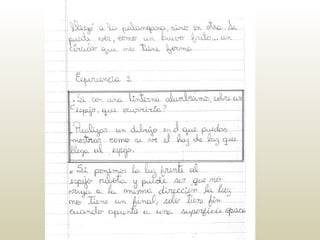 llegó a la palangana, sino en otra. Se
puede ver, como un nuevo fruto... un
círculo que no tiene forma
Experiencia 2
• Si con una linterna alumbramos, sobre un
espejo, que ocurrirá?
• Realizar un dibujo en el que puedas
mostrar como se ve el haz de luz que
llega al espejo.
• Si ponemos la luz frente al
espejo rebota y puede ser que no
vuelva a la misma dirección la luz
no tiene un final, solo tiene fin
cuando apunta a una superficie opaca